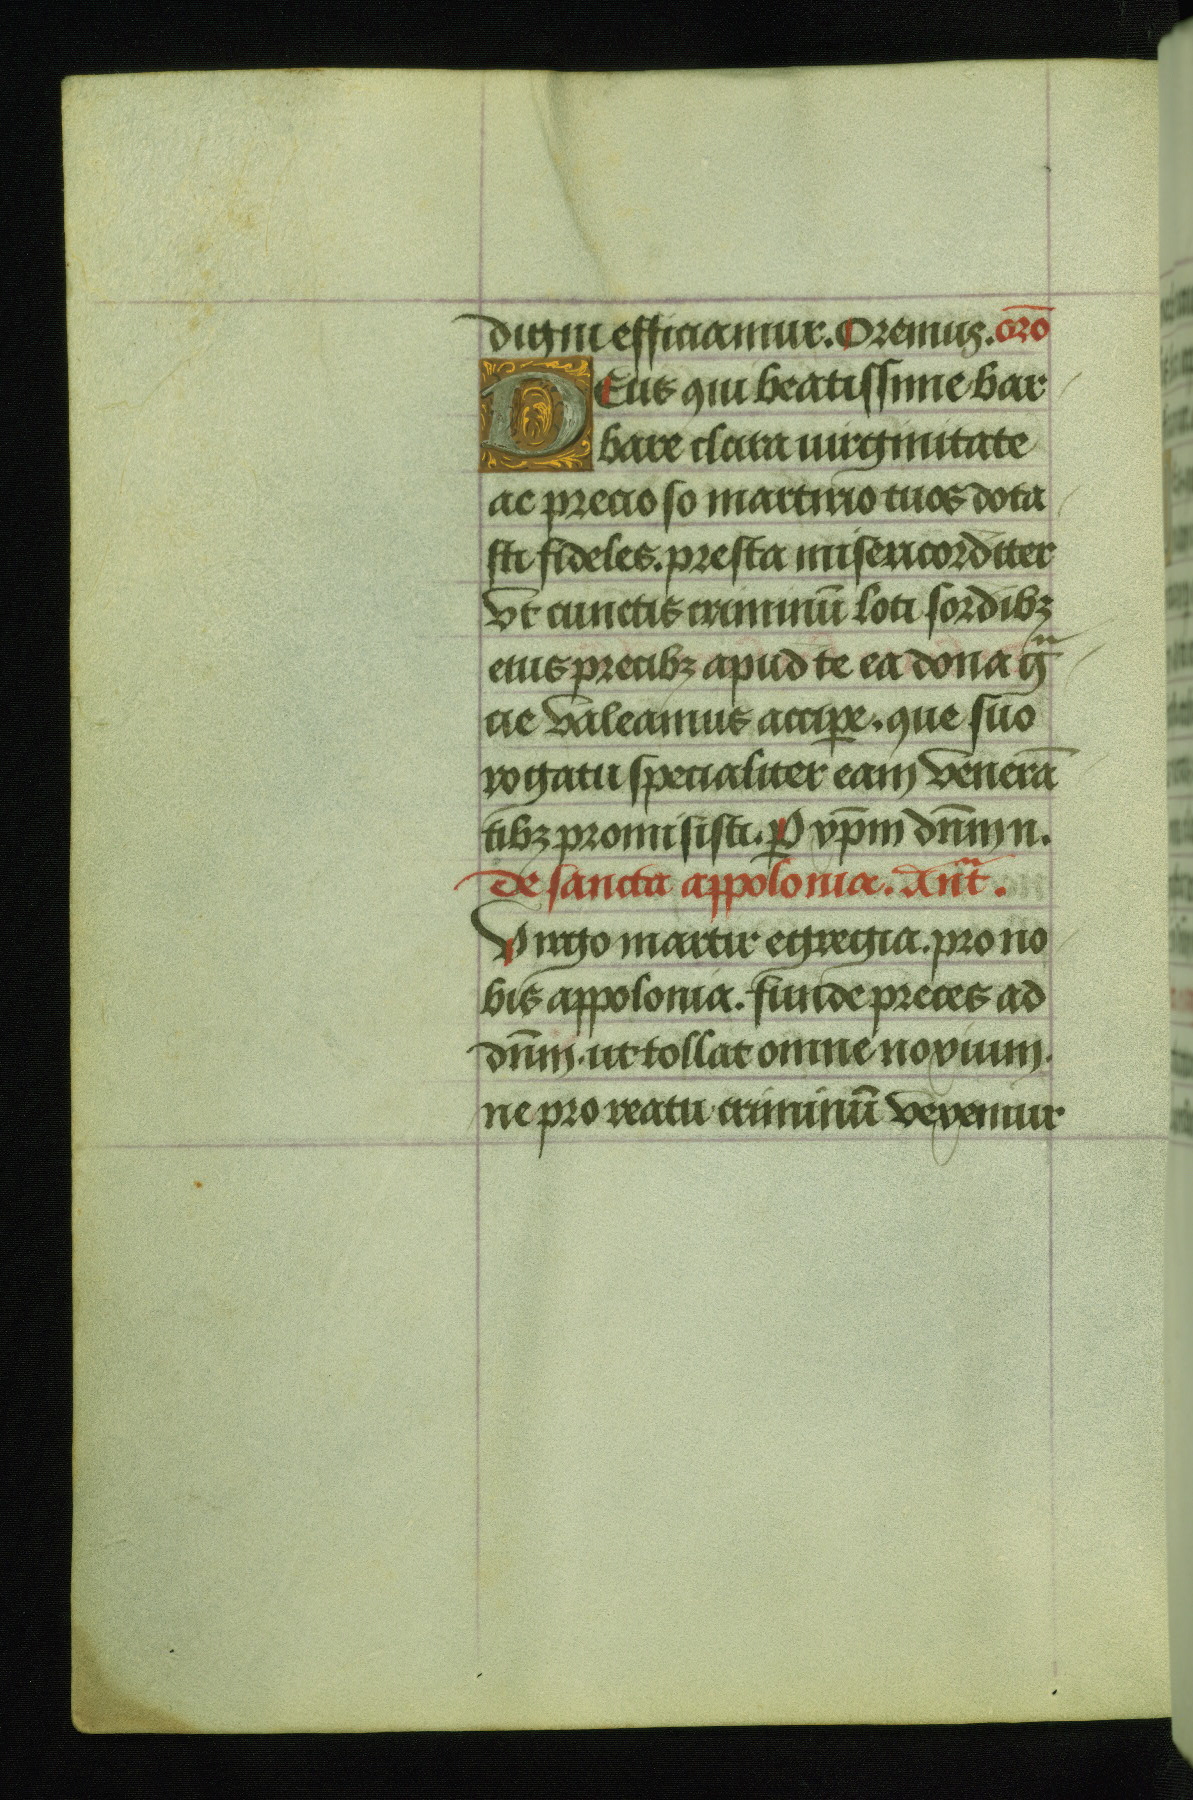 digni efficiamur. Oremus. orō
DEus qui beatissime bar
bare clara uirginitate
ac precioso martirio tuos dota
sti fideles. presta misericorditer
vt cunctis criminū loti sordibꝫ
eius precibꝫ apud te ea dona gr̄
cie valeamus accipꝑe. que suo
rogatu specialiter eam venerā
tibꝫ promisisti. P xp̄m dn̄m n.
De sancta appolonia. Ant̄.
Virgo martir egregia. pro no
bis appolonia. funde preces ad
dn̄m. ut tollat omne noxium.
ne pro reatu criminū vexemur